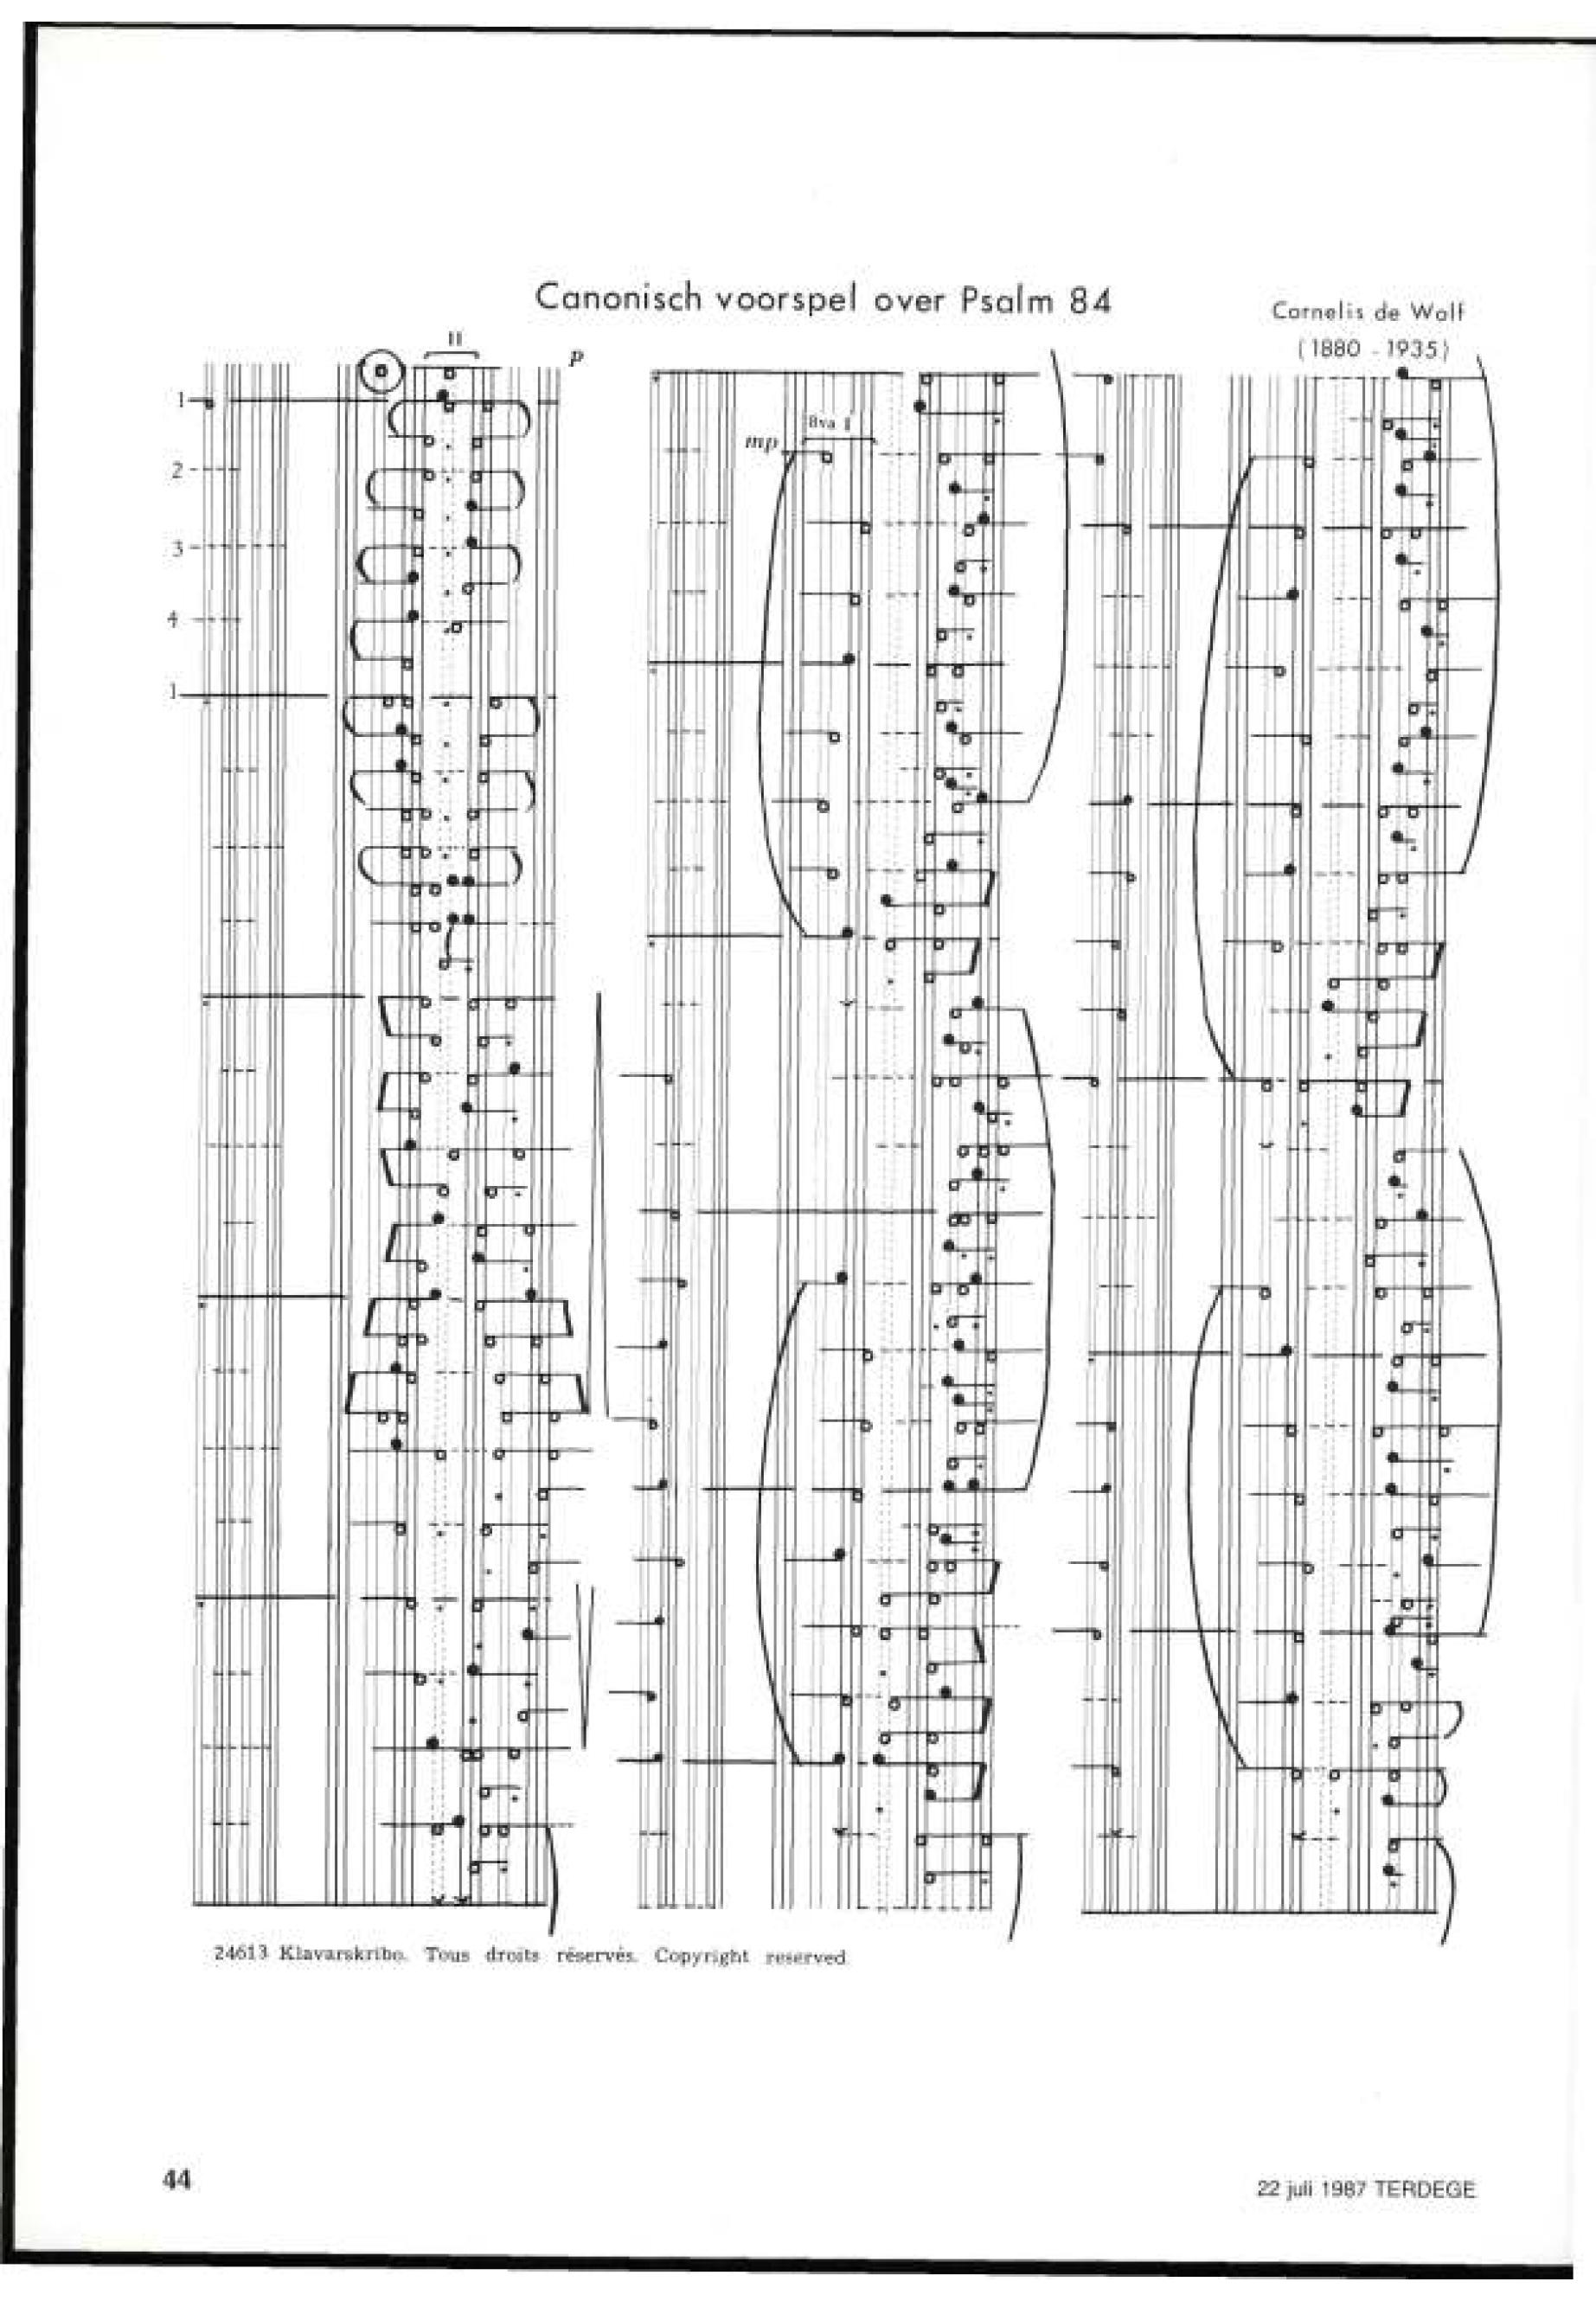 Canonisch voorspel over Psalm 84
Cornelis de Wolf
(1880 - 1935)
II
p
1
2
3
4
1
mp
8va I
24613 Klavarskribo. Tous droits réservés. Copyright reserved
44
22 juli 1987 TERDEGE